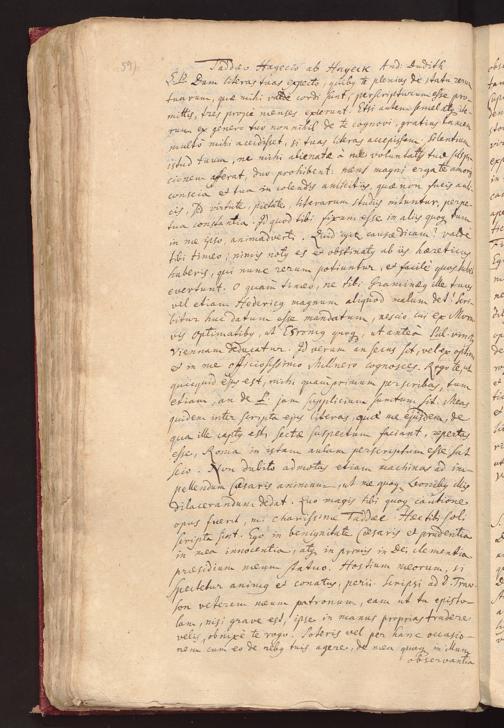 591
Taddæo Hagecio ab Hageck And: Dudith
S.P. Dum literas tuas expecto, quibus te plenius de statu rerum
tuarum, quæ mihi valde cordi sunt, perscripturum esse pro-
mittis, tres prope menses exierunt. Etsi autem semel et ite-
rum ex genero tuo nonnihil de te cognovi, gratius tamen
multo mihi accidisset, si tuas literas accepissem. Silentium
istud tuum, ne mihi alienatæ a me voluntatis tuæ suspi-
cionem afferat, duo prohibent: mens magni erga te amoris
conscia et tua in colendis amicitiis, quæ non fucis anti-
cis, sed virtute, pietate, literarum studiis nituntur, perpe-
tua constantia. Id quod tibi fixum esse in aliis quoq tum
in me ipso, animadverti. Quid igitur causæ dicam? valde
tibi timeo; nimis notus es et obstinatus ab iis hæreticus
haberis, qui nunc rerum potiuntur, et facile quos lubet
evertunt. O quam timeo, ne tibi Gramineus ille tuus
vel etiam Hedericus magnum aliquod malum det: Scri-
bitur huc datum esse mandatum, nescio cui ex Mora-
vis Optimatibus, ut
Viennam deducatur. Id verum an secus sit, vel ex optimo
et in me officiosissimo Millnero cognosces. Rogo te, ut
quicquid ejus est, mihi quam primum perscribas, tum
etiam, an de P. jam supplicium sumtum sit. Meas
quidem inter scripta ejus literas, quæ me ejusdem, de
qua ille captus est, sectæ suspectum faciant, repertas
esse, Roma in istam aulam perscriptum esse sat
scio. Non dubito admotas etiam machinas ad im-
pellendum Cæsaris animum, ut me quoq Leonibus illis
dilacerandum dedat. Quo magis tibi quoq cautione
opus fuerit, mi charissime Taddæe. Hæc tibi soli
scripta sint. Ego in benignitate Cæsaris et prudentia
in mea innocentia, atq in primis in Dei clementia
præsidium meum statuo. Hostium meorum, si
spectetur animus et conatus, perii. Scripsi ad D. Trau-
son veterem meum patronum, eam ut tu episto-
lam, nisi grave est, ipse in manus proprias tradere
velis, obnixe te rogo. Poteris vel per hanc occasio-
nem cum eo de rebus tuis agere, de mea quoq in illum
observantia